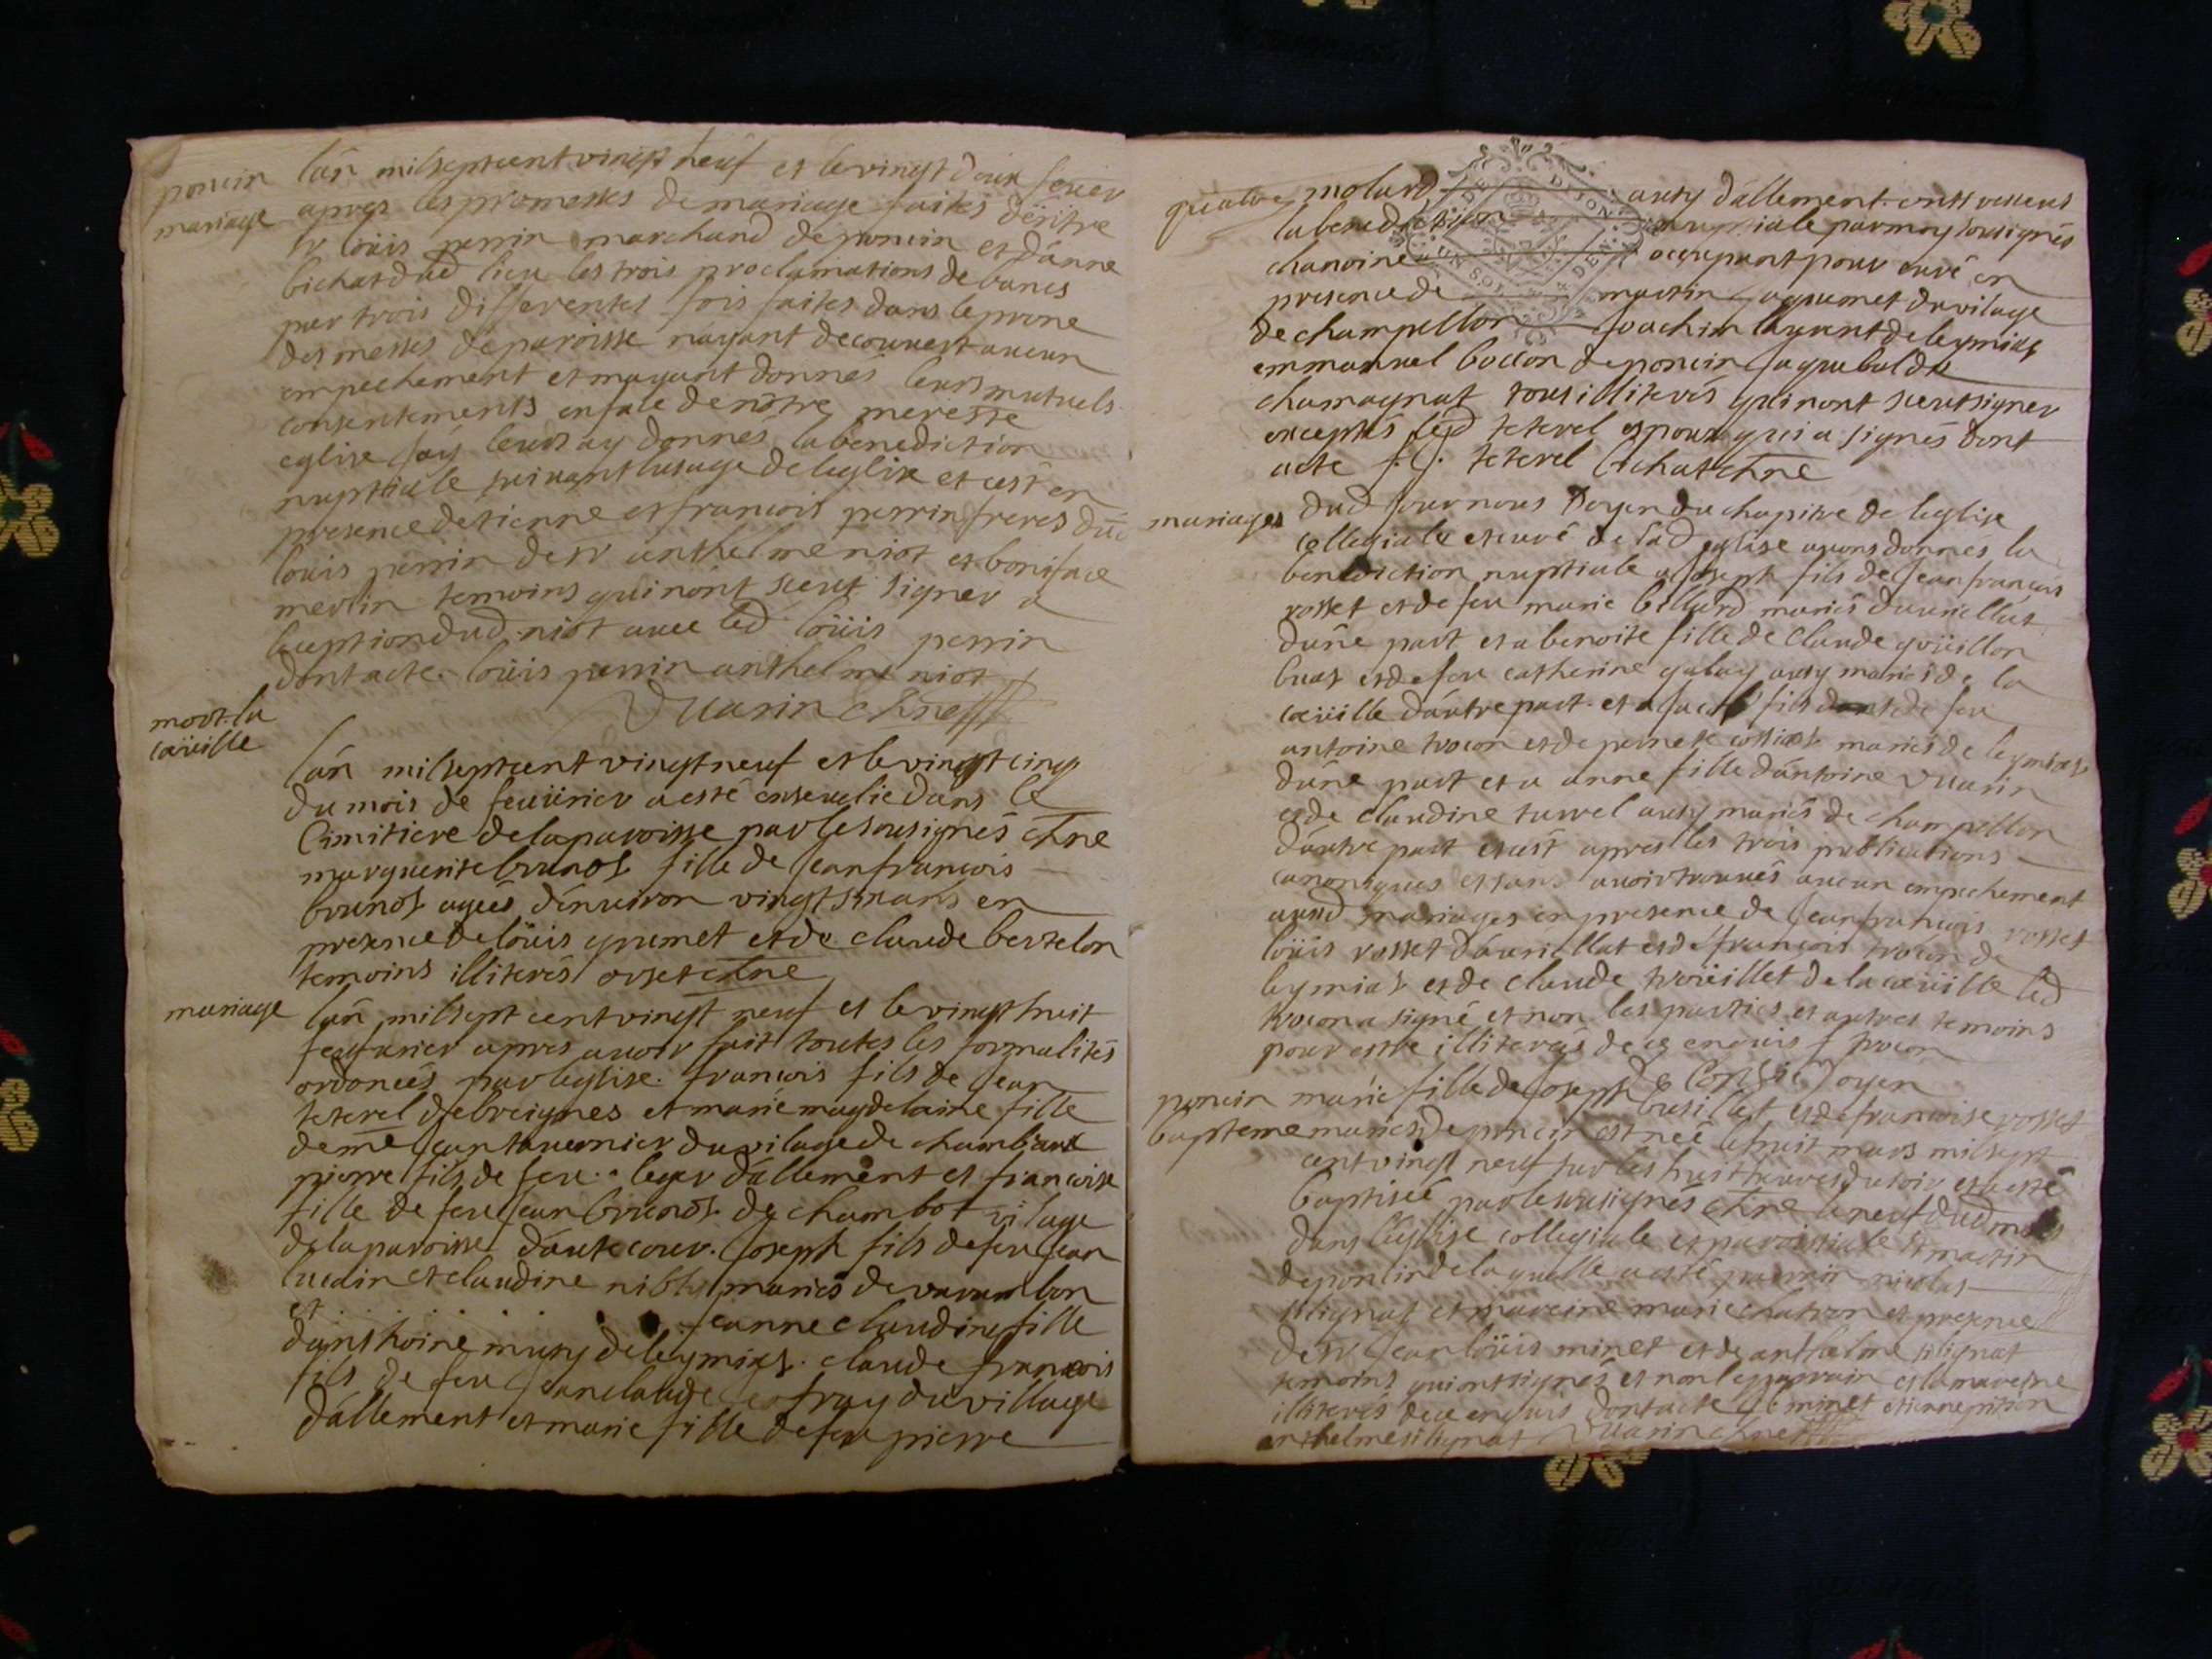 poncin
mariage
lán milseptcent vingt neuf et le vingt deux feuer
apres les promesses de mariage faites déntre
sr loüis perrin marchand de poncin et dánne
bichat dud lieu les trois proclamations de bancs
par trois differentes fois faites dans le prone
des messes de paroisse nayant decouuert aucun
empechement et mayant donnés leurs mutuels
consentements en face de nótre mere ste
eglise jáy leurs ay donnés la benediction
nuptiale suiuant lusage de leglise et cest en
presence detienne et francois perrin freres dud
loüis perrin de sr anthelme niot et boniface
merlin temoins qui nont sceut signer a
lexception dud niot auec led loüis perrin
dont acte. loüis perrin anthelme niot
Vuarin chne
mort. la
coüille
lán milseptcent vingt neuf et le vingt cinq
du mois de feuürier a esté enseuelie dans le
Cimitiere de la paroisse par le sousignés chne
marguerite brunot fille de jean francois
brunot agées dénuiron vingt six ans en
presence de loüis grumet et de claude bertelon
temoins illiterés orset chne
mariage
lán milsept cent vingt neuf et le vingt huit
feuurier apres auoir fait toutes les formalités
ordonées par leglise. francois fils de jean
teterel debreignes et marie magdelaine fille
de me jean tauernier du vilage de chamb
pierre fils de feu leger dállement et francoise
fille de feu jean brunot de chambot vilage
de la paroisse dáutecour. joseph fils de feu jean
lucain et claudine mariés de varambon
et jeanne claudine fille
dánthoine mury de leymiat. claude francois
fils de feu jean claude du village
dállement et marie fille de feu pierre
quatre
molard aussy dállement ont receus
la benediction nuptiale par moy sousignés
chanoine occupant pour curé en
presence de martin du vilage
de champellon joachin de leymiat
emmanuel bollon de poncin
chamagnat tous illiterés qui nont sceut signer
exceptés led teterel espoux qui a signés dont
acte f. teterel bichat chne
mariages
dud jour nous Doyen du chapitre de leglise
collegiale et curé de lad eglise auons donnés la
benediction nuptiale a joseph fils de jean francois
rosset et de feu marie billard mariés dauriellat
dúne part et a benoite fille de claude goüillon
et de feu catherine galay aussy mariés de la
coeüille dáutre part. et a fils de feu
antoine trocon et de pernette mariés de leymiat
dúne part et a anne fille dántoine Vuarin
et de claudine turrel aussy mariés de champellon
dáutre part et cest apres les trois publications
canoniques et sans auoir trouués aucun empechement
ausd mariages en presence de jean francois rosset
loüis rosset dáuriellat et de francois trocon de
leymiat et de claude troüillet de la coeüille led
trocon a signé et non les parties et autres temoins
pour estre illiterés de ce enquis f trocon
Doyen
poncin
bapteme
marie fille de joseph busillet et de francoise rosset
mariés de poncin est née le huit mars milsept
cent vingt neuf sur les huit heures du soir et a esté
baptisée par le sousignés chne le neuf dud mois
dans léglise collegiale et paroissiale st martin
de poncin de laquelle a esté parrain nicolas
silignat et maraine marie chatron en presence
de sr jean loüis minet et de anthelme silignat
temoins qui ont signés et non le parrain et la maraine
illiterés de ce enquis dont acte minet
anthelme silignat Vuarin chne